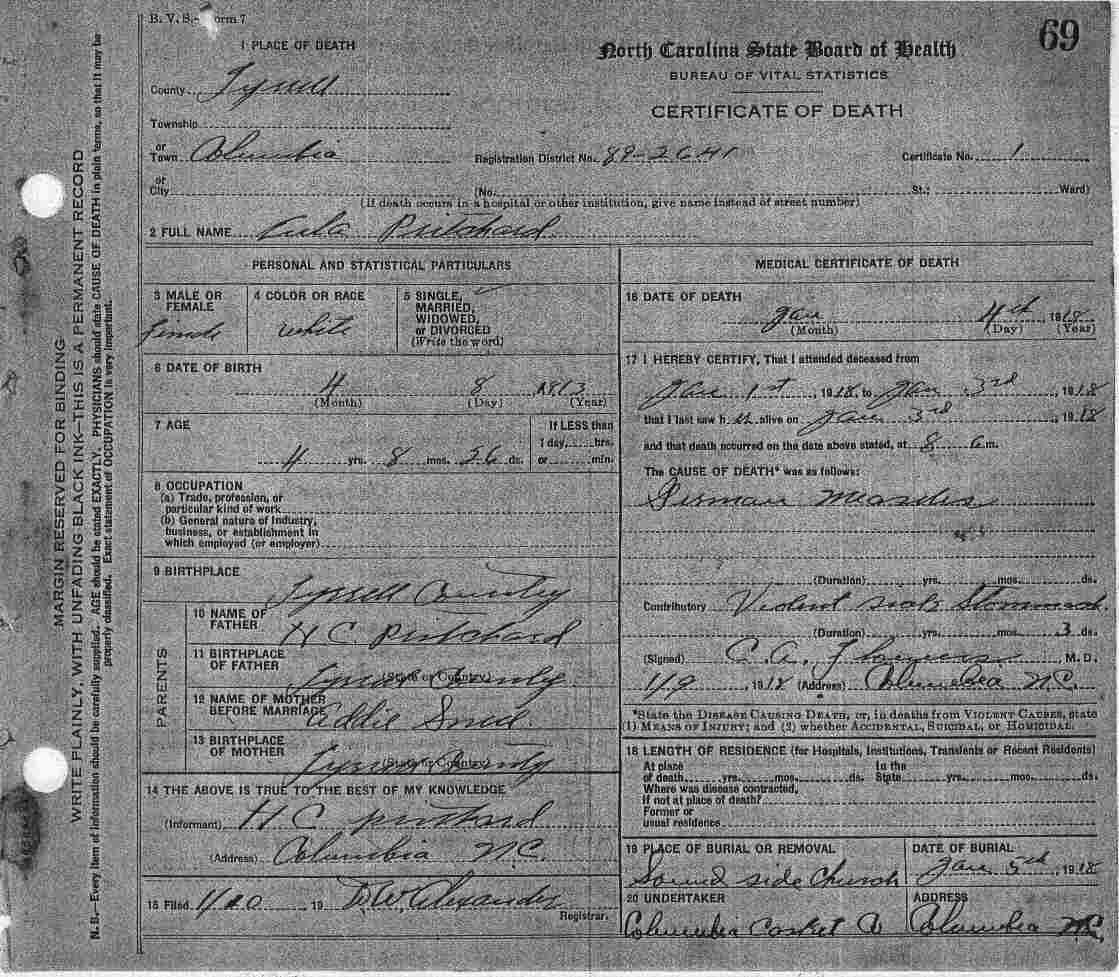 B. V. S.— Form 7
69
1 PLACE OF DEATH
North Carolina State Board of Health
BUREAU OF VITAL STATISTICS
CERTIFICATE OF DEATH
County Tyrrell
Township
or
Town Columbia
Registration District No. 89-2641
Certificate No. 1
or
City
(No. St.; Ward)
(If death occurs in a hospital or other institution, give name instead of street number)
2 FULL NAME Pritchard
PERSONAL AND STATISTICAL PARTICULARS
3 MALE OR FEMALE
Female
4 COLOR OR RACE
White
5 SINGLE,
MARRIED,
WIDOWED,
or DIVORCED
(Write the word)
6 DATE OF BIRTH
4 8 1813
(Month) (Day) (Year)
7 AGE
4 yrs. 8 mos. 26 ds.
If LESS than
1 day, hrs.
or min.
8 OCCUPATION
(a) Trade, profession, or
particular kind of work
(b) General nature of Industry,
business, or establishment in
which employed (or employer)
9 BIRTHPLACE
Tyrrell County
PARENTS
10 NAME OF
FATHER
H C Pritchard
11 BIRTHPLACE
OF FATHER
(State or County)
Tyrrell County
12 NAME OF MOTHER
BEFORE MARRIAGE
Addie
13 BIRTHPLACE
OF MOTHER
(State or County)
Tyrrell County
14 THE ABOVE IS TRUE TO THE BEST OF MY KNOWLEDGE
(Informant) H C Pritchard
(Address) Columbia N.C.
15 Filed 1/20 19 D.W. Alexander
Registrar.
MEDICAL CERTIFICATE OF DEATH
16 DATE OF DEATH
Jan 4th 1918
(Month) (Day) (Year)
17 I HEREBY CERTIFY, That I attended deceased from
Jan 1st, 1918, to Jan 3rd, 1918
that I last saw h er alive on Jan 3rd, 1918
and that death occurred on the date above stated, at 8 m.
The CAUSE OF DEATH* was as follows:
German Measles
(Duration) yrs. mos. ds.
Contributory Violent sick Stommach
(Duration) yrs. mos. 3 ds.
(Signed) C. A. Flowers, M. D.
1/9 1918 (Address) Columbia N.C.
*State the DISEASE CAUSING DEATH, or, in deaths from VIOLENT CAUSES, state
(1) MEANS OF INJURY; and (2) whether ACCIDENTAL, SUICIDAL, or HOMICIDAL.
18 LENGTH OF RESIDENCE (for Hospitals, Institutions, Transients or Recent Residents)
At place In the
of death yrs. mos. ds. State yrs. mos. ds.
Where was disease contracted,
if not at place of death?
Former or
usual residence
19 PLACE OF BURIAL OR REMOVAL
Sound side Church
DATE OF BURIAL
Jan 5th, 1918
20 UNDERTAKER
Columbia Casket Co
ADDRESS
Columbia N.C.
MARGIN RESERVED FOR BINDING
WRITE PLAINLY, WITH UNFADING BLACK INK—THIS IS A PERMANENT RECORD
N. B.—Every item of information should be carefully supplied. AGE should be stated EXACTLY. PHYSICIANS should state CAUSE OF DEATH in plain terms, so that it may be
properly classified. Exact statement of OCCUPATION is very important.